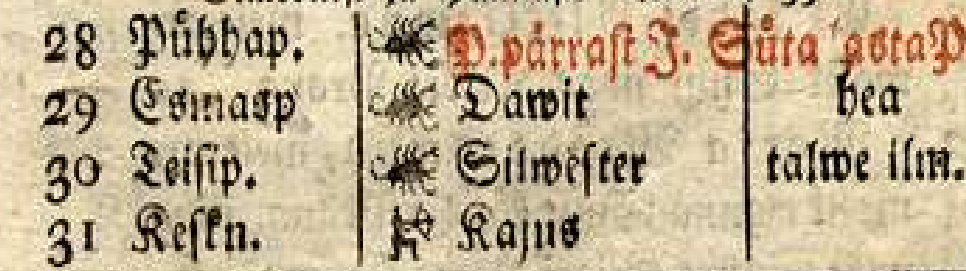 28 Pühhap. P. pärrast J. Süta astaP
29 Esmasp Dawit hea
30 Teisip. Silwester talwe ilm.
31 Keskn. Kajus